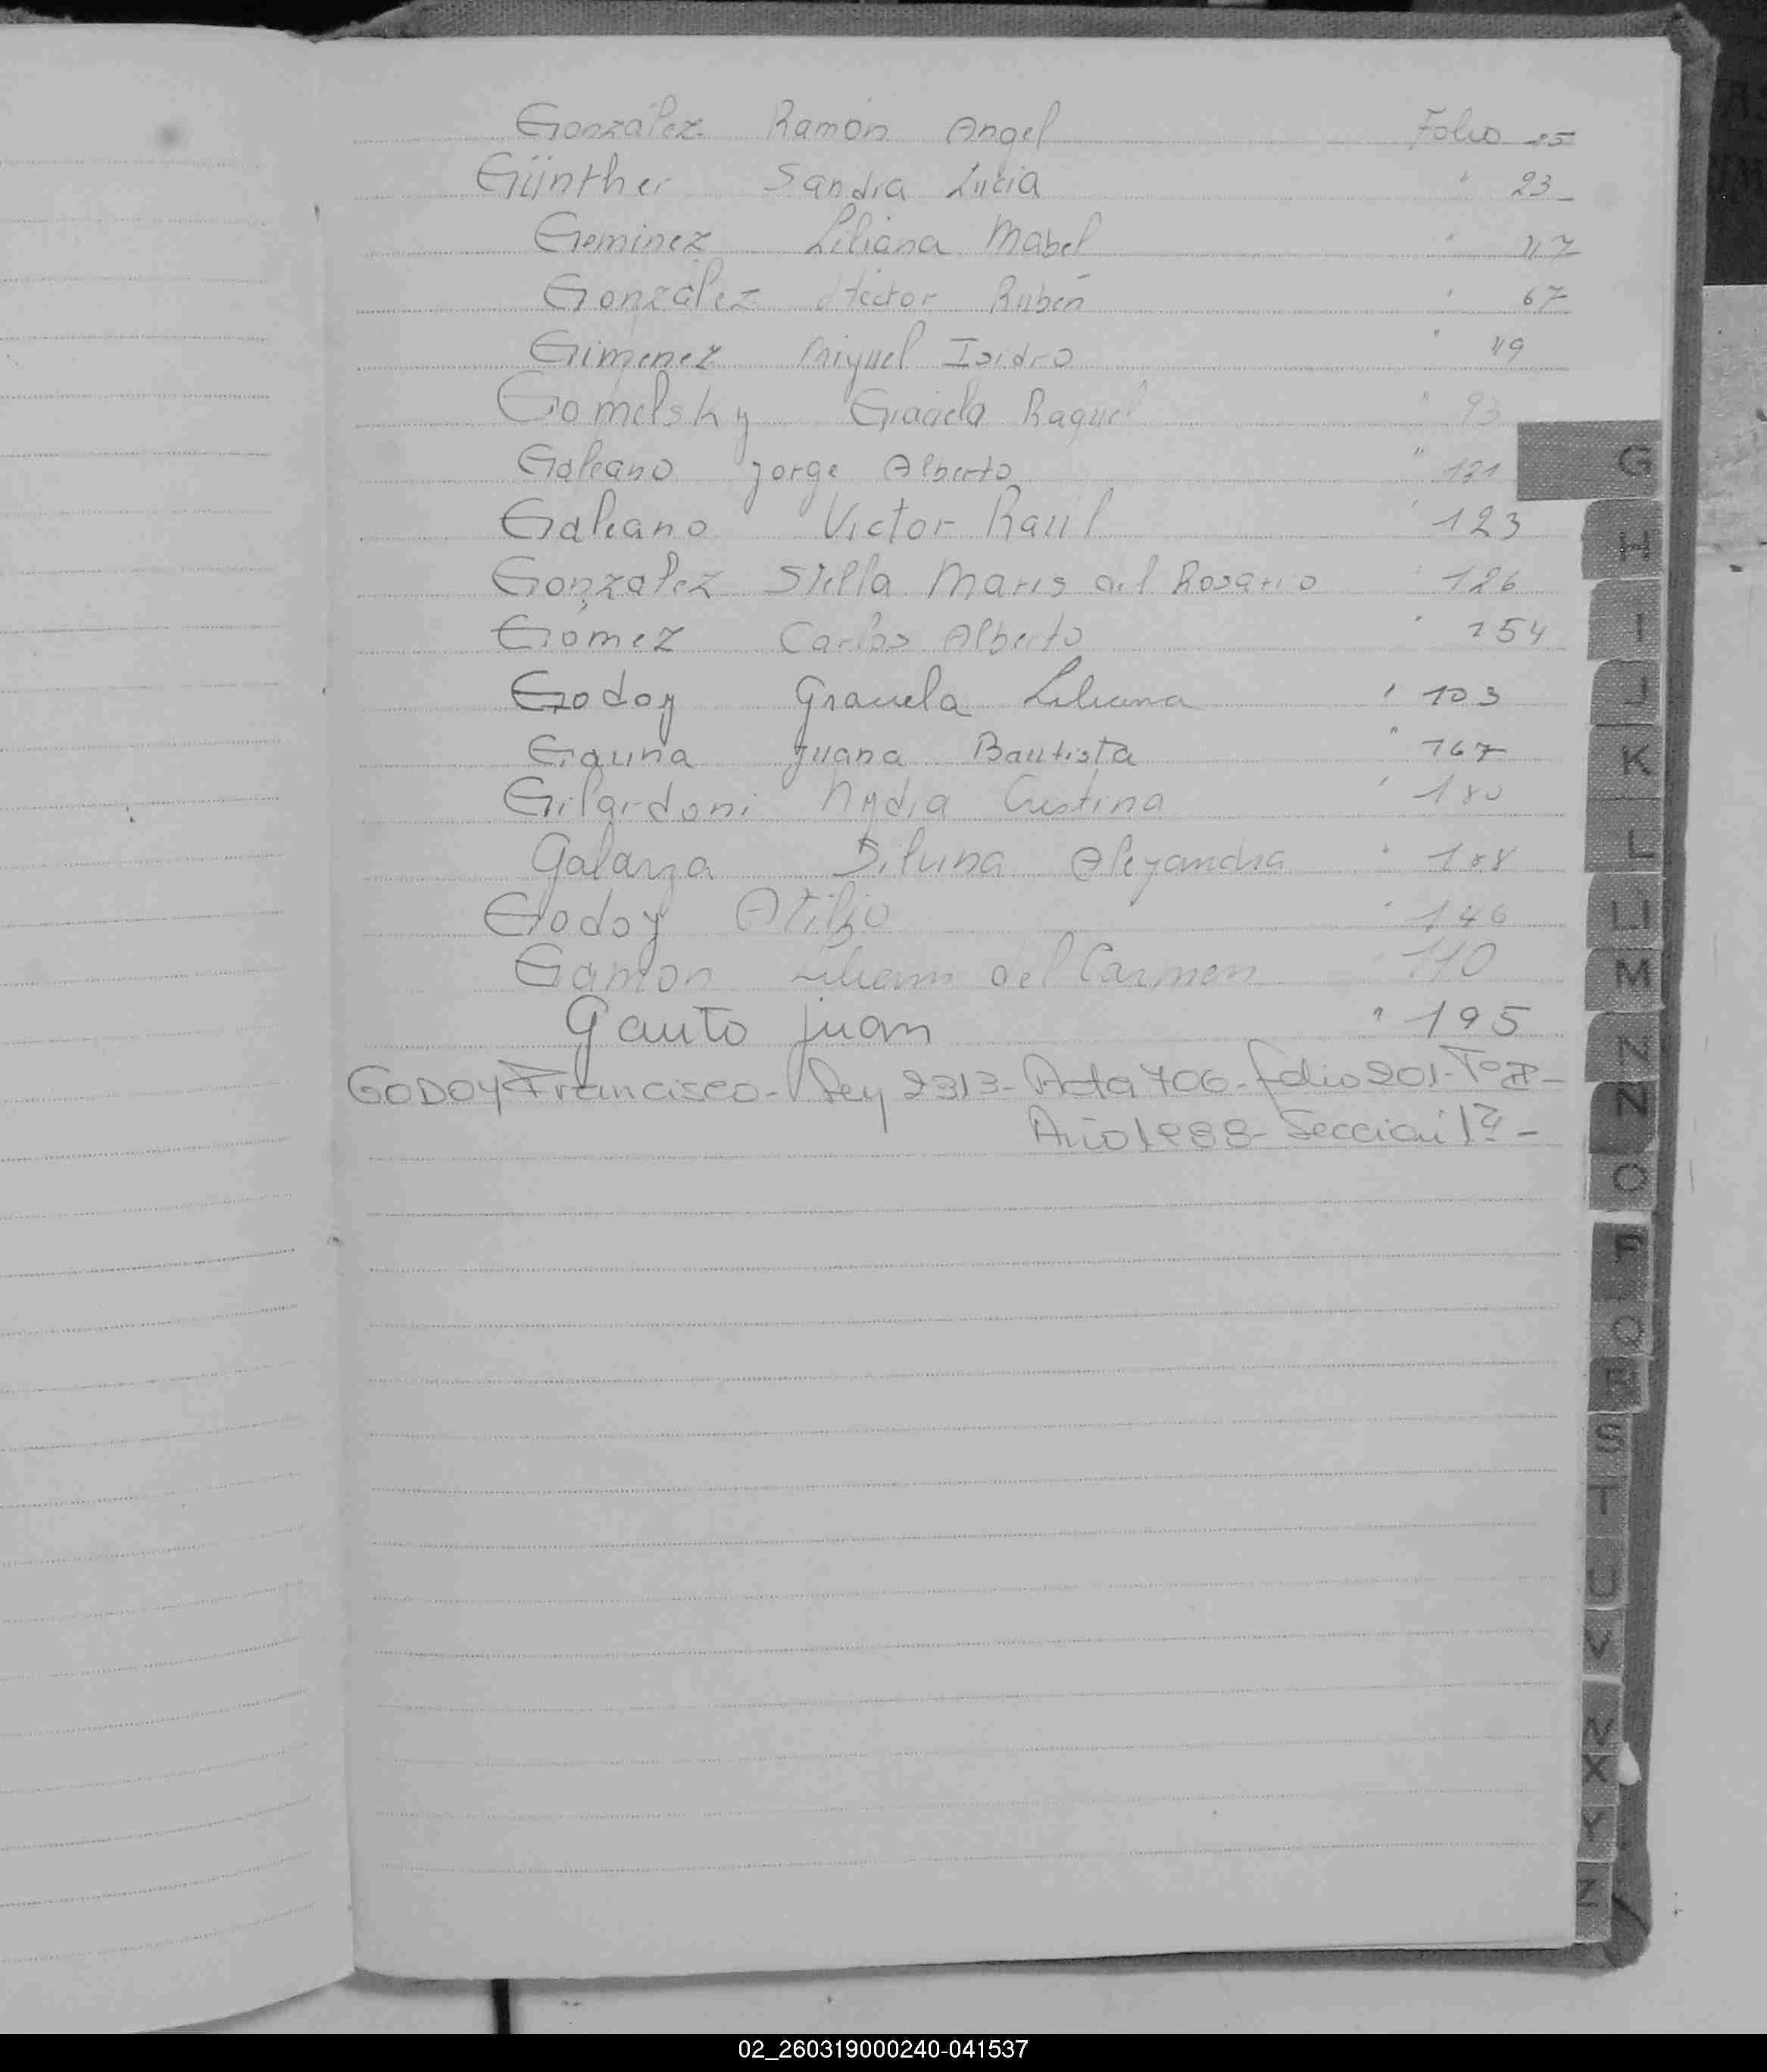 González Ramón Angel Folio 25
Günther Sandra Lucia " 23
Geminez Liliana Mabel " 47
González Hector Rubén " 67
Gimenez Miguel Isidro "
Gomelsky Graciela Raquel " 93
Galeano Jorge Alberto " 121
Galeano Victor Raúl " 123
Gonzalez Stella Maris del Rosario " 126
Gómez Carlos Alberto " 154
Godoy Graciela Liliana " 103
Gauna Juana Bautista " 167
Gilardoni Nydia Cristina " 180
Galarza Silvina Alejandra " 188
Godoy Atilio " 146
Gamon Liliam del Carmen 110
Gauto Juan " 195
GODOY Francisco - Ley 2313 - Acta 706 - folio 201 - Tº II -
Año 1988 - Sección 1ª -
G
H
I
J
K
L
LL
M
N
Ñ
O
P
Q
R
S
T
U
V
X
Y
Z
02_260319000240-041537